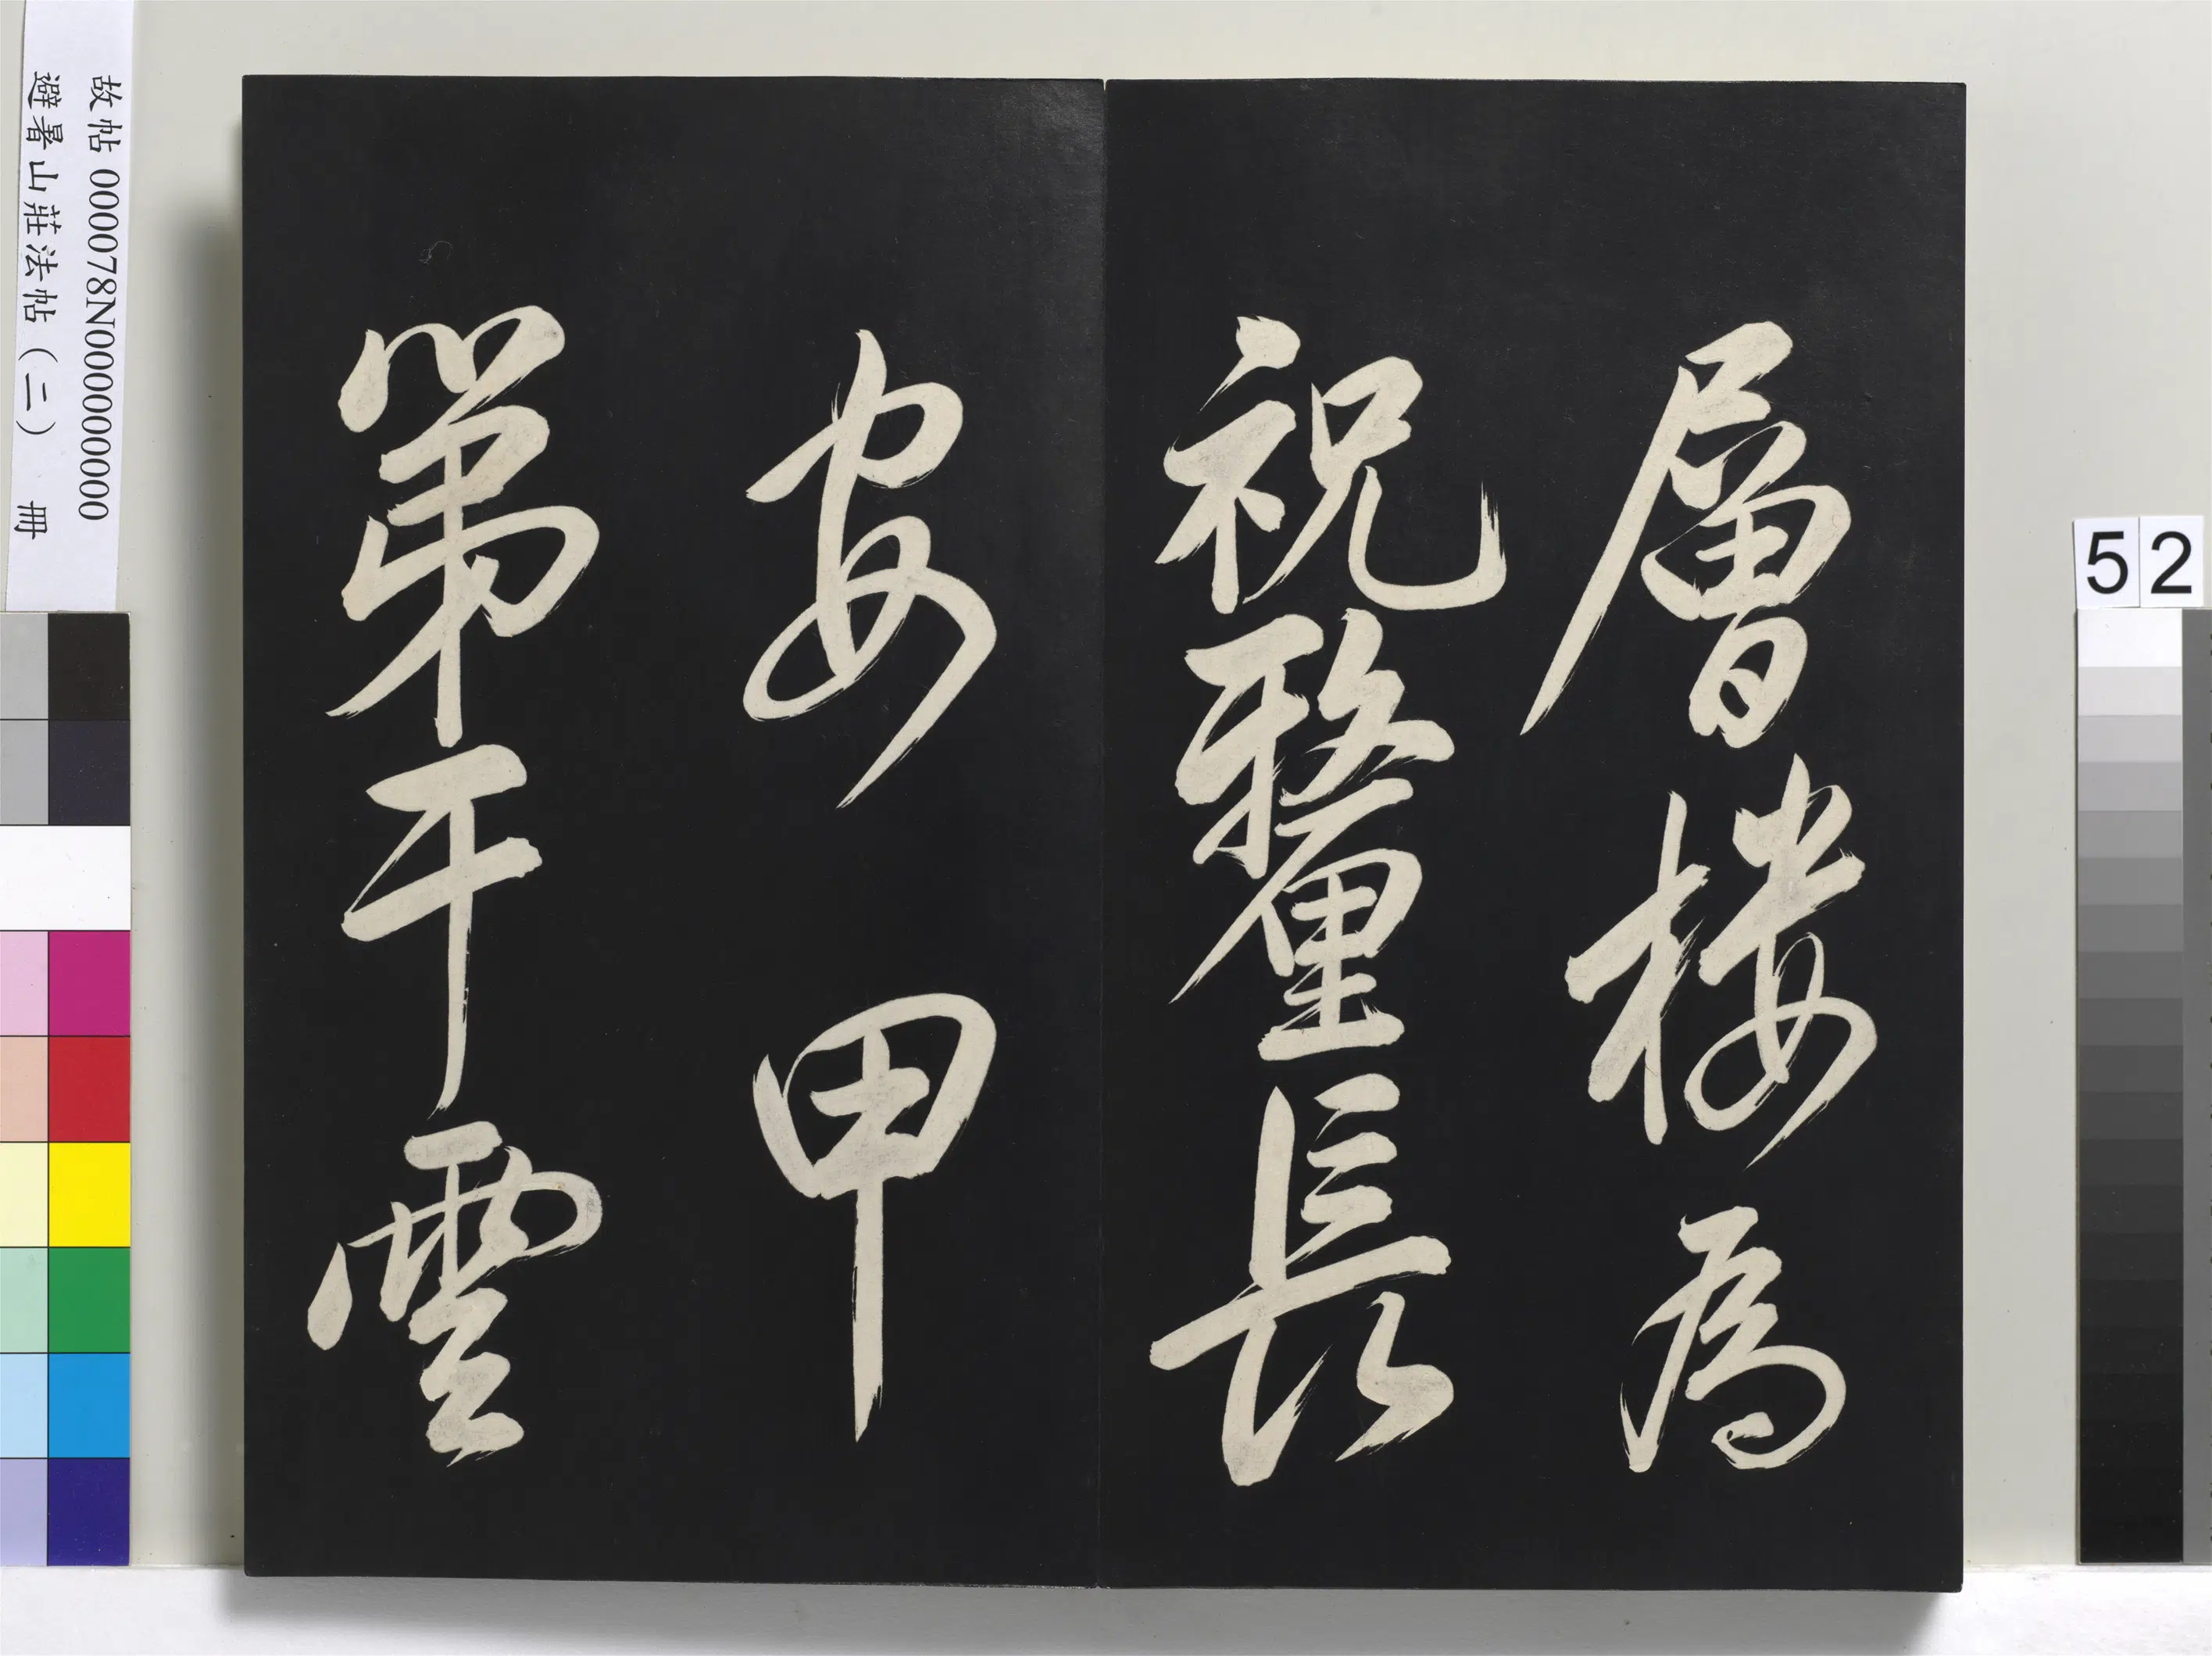 層樓為
祝釐長
安甲
第干雲
故帖 000078N000000000
避暑山莊法帖(二) 冊
52